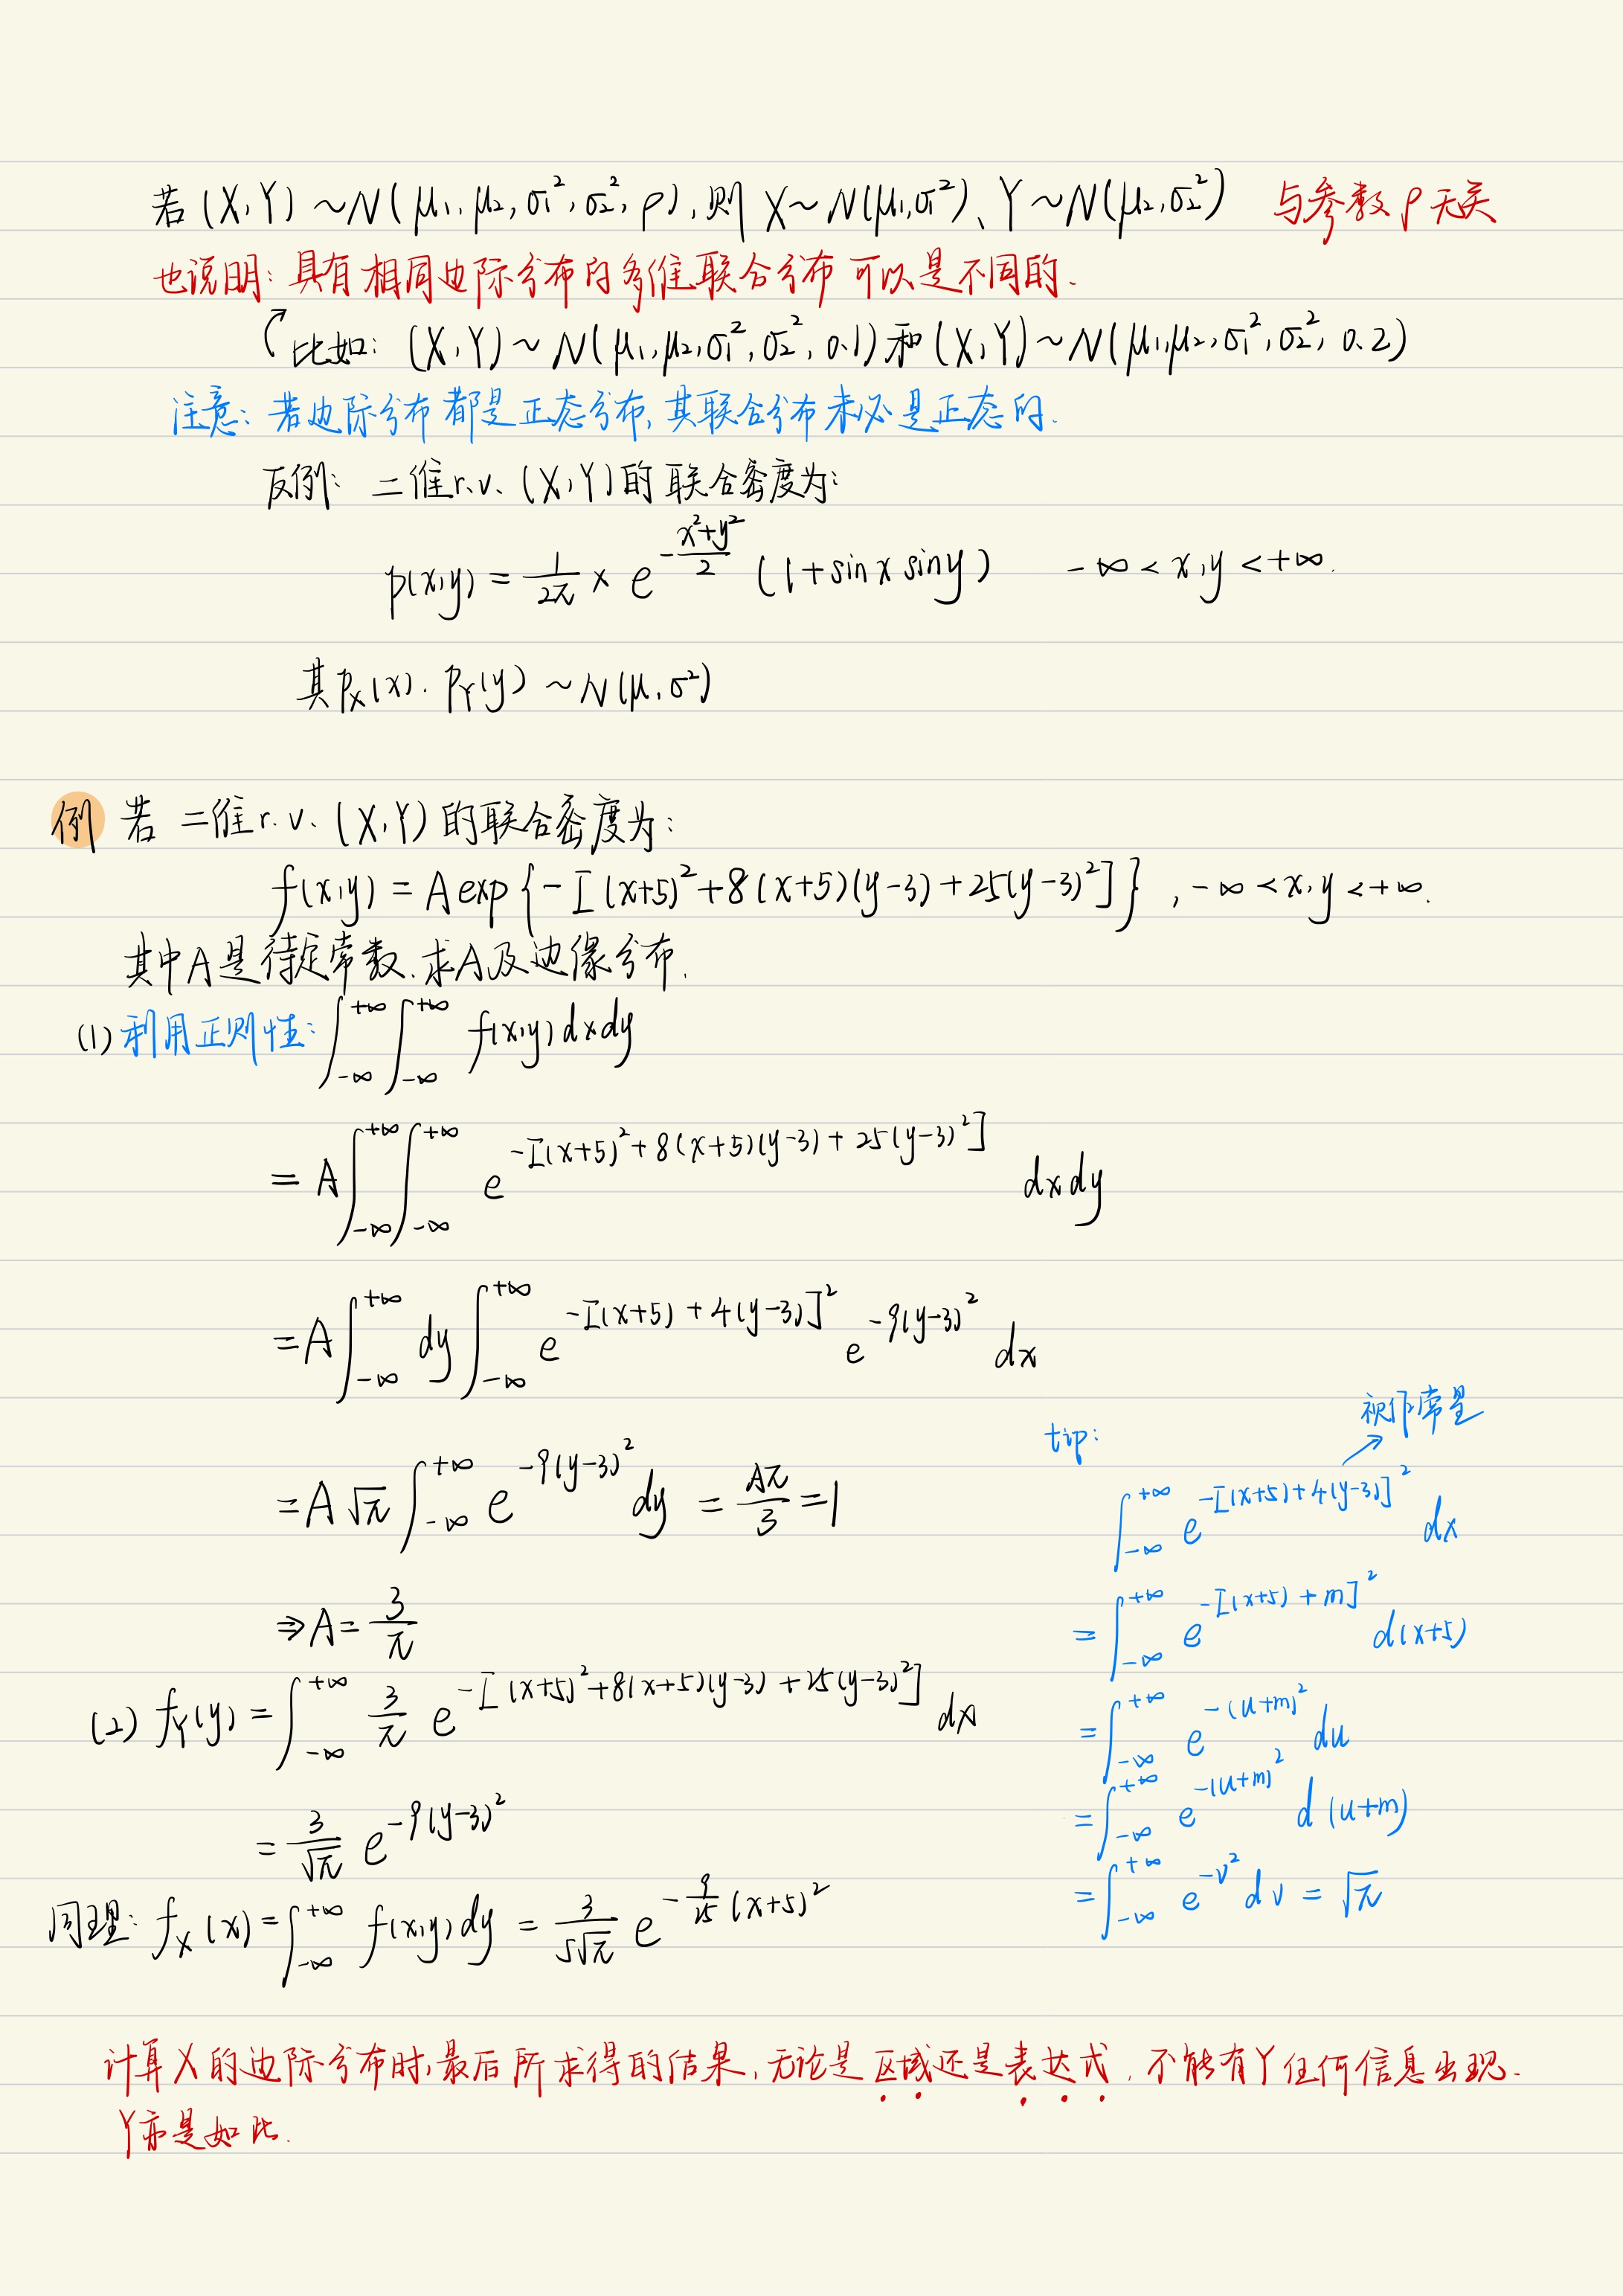 若 (X,Y) ~ N(μ₁, μ₂, σ₁², σ₂², ρ), 则 X ~ N(μ₁,σ₁²)、Y ~ N(μ₂,σ₂²) 与参数 ρ 无关
也说明: 具有相同边际分布的多维联合分布可以是不同的.
比如: (X,Y) ~ N(μ₁,μ₂,σ₁²,σ₂², 0.1) 和 (X,Y) ~ N(μ₁,μ₂,σ₁²,σ₂², 0.2)
注意: 若边际分布都是正态分布, 其联合分布未必是正态的.
反例: 二维r.v. (X,Y)的联合密度为:
p(x,y) = \frac{1}{2π} × e^{-\frac{x²+y²}{2}} (1+sinx siny) -∞ < x,y < +∞.
其 p_X(x). p_Y(y) ~ N(μ,σ²)
例 若 二维r.v. (X,Y) 的联合密度为:
f(x,y) = A exp{-[(x+5)²+8(x+5)(y-3)+25(y-3)²]}, -∞ < x,y < +∞.
其中A是待定常数.求A及边缘分布.
(1) 利用正则性: ∫_{-∞}^{+∞}∫_{-∞}^{+∞} f(x,y)dxdy
= A∫_{-∞}^{+∞}∫_{-∞}^{+∞} e^{-[(x+5)²+8(x+5)(y-3)+25(y-3)²]} dxdy
= A∫_{-∞}^{+∞} dy ∫_{-∞}^{+∞} e^{-[(x+5)+4(y-3)]²} e^{-9(y-3)²} dx
= A√π ∫_{-∞}^{+∞} e^{-9(y-3)²} dy = \frac{Aπ}{3} = 1
⇒ A = \frac{3}{π}
tip: 视作常量
∫_{-∞}^{+∞} e^{-[(x+5)+4(y-3)]²} dx
= ∫_{-∞}^{+∞} e^{-[(x+5)+m]²} d(x+5)
= ∫_{-∞}^{+∞} e^{-(u+m)²} du
= ∫_{-∞}^{+∞} e^{-(u+m)²} d(u+m)
= ∫_{-∞}^{+∞} e^{-v²} dv = √π
(2) f_Y(y) = ∫_{-∞}^{+∞} \frac{3}{π} e^{-[(x+5)²+8(x+5)(y-3)+25(y-3)²]} dx
= \frac{3}{√π} e^{-9(y-3)²}
同理: f_X(x) = ∫_{-∞}^{+∞} f(x,y)dy = \frac{3}{5√π} e^{-\frac{9}{25}(x+5)²}
计算X的边际分布时,最后所求得的结果,无论是区域还是表达式,不能有Y任何信息出现.
Y亦是如此.